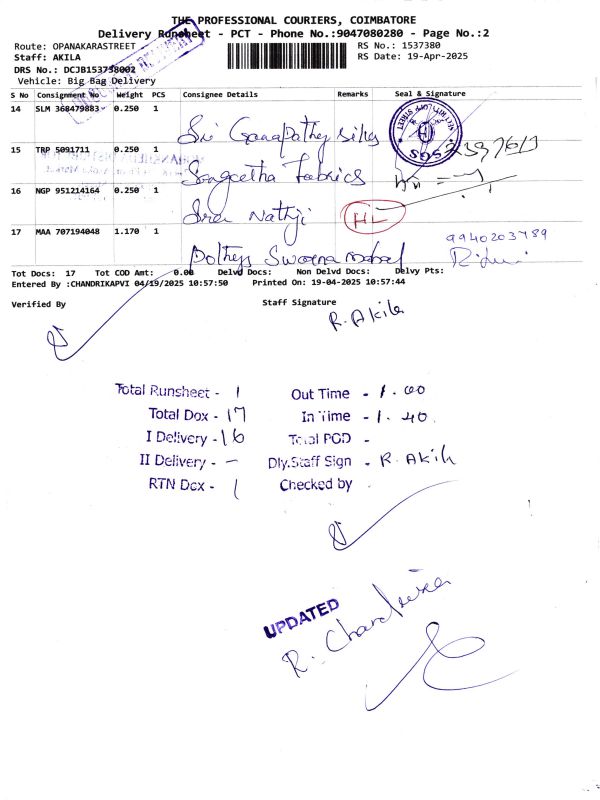 THE PROFESSIONAL COURIERS, COIMBATORE
Delivery Runsheet - PCT - Phone No.:9047080280 - Page No.:2
Route: OPANAKARASTREET
RS No.: 1537380
Staff: AKILA
RS Date: 19-Apr-2025
DRS No.: DCJB153738002
Vehicle: Big Bag Delivery
S No Consignment No Weight PCS Consignee Details Remarks Seal & Signature
14 SLM 368479883 0.250 1 Sri Ganapathy Silks
15 TRP 5091711 0.250 1 Sangeetha Fabrics
16 NGP 951214164 0.250 1 Sree Nathji HL
17 MAA 707194048 1.170 1 Pothys Swarna mahal 9940203789
Tot Docs: 17 Tot COD Amt: 0.00 Delvd Docs: Non Delvd Docs: Delvy Pts:
Entered By :CHANDRIKAPVI 04/19/2025 10:57:50 Printed On: 19-04-2025 10:57:44
Verified By Staff Signature
R. Akila
Total Runsheet - 1 Out Time - 1.00
Total Dox - 17 In Time - 1.40
I Delivery - 16 Total POD -
II Delivery - – Dly.Staff Sign - R. Akila
RTN Dox - 1 Checked by
UPDATED
R. Chandrika